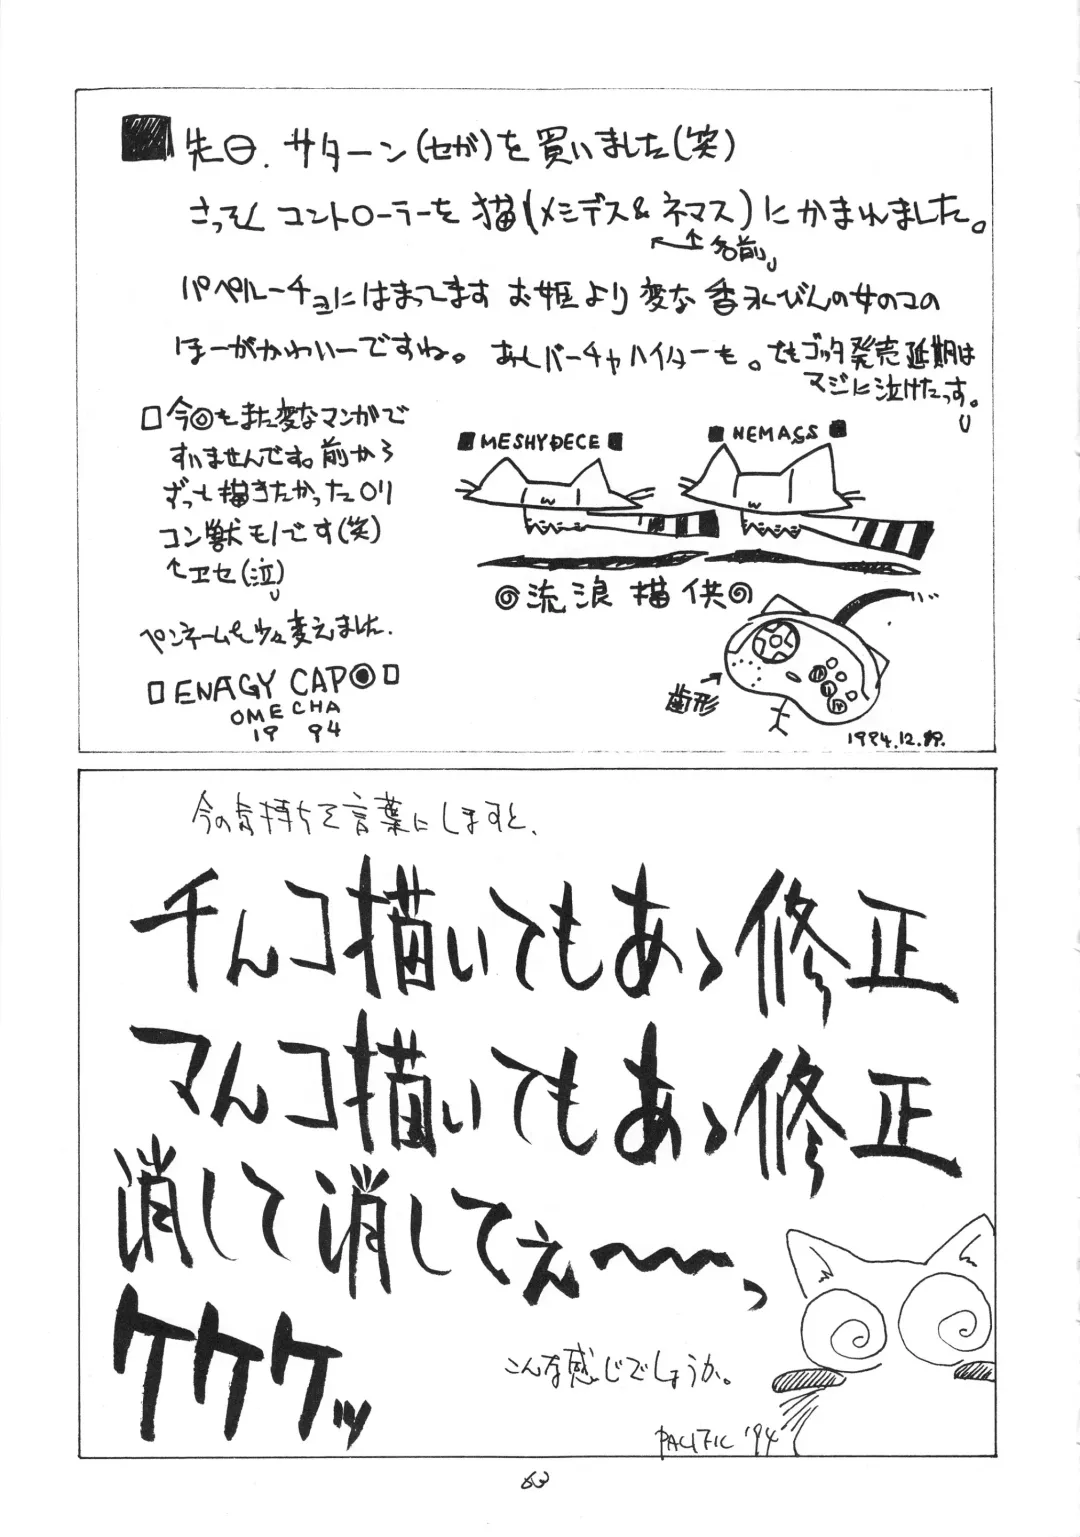 先日、サターン(セガ)を買いました(笑)
さっそくコントローラーを猫(メシデス&ネマス)にかまれました。
名前
パペルーチョにはまってます お姫より変な香水びんの女のコの
ほーがかわいーですね。あとバーチャハイターも。でもゴッタ発売延期は
マジに泣けたっす。
今回もまた変なマンガで
すいませんです。前から
ずっと描きたかったロリ
コン獣モノです(笑)
↑エセ(泣)
ペンネームも少々変えました.
ENAGY CAP◉
OMECHA
1994
MESHYDECE
NEMASS
◎流浪猫供◎
歯形
1994.12.
今の気持ちを言葉にしますと、
チんコ描いてもあゝ修正
マんコ描いてもあゝ修正
消して消してぇ〜〜〜っ
ケケケッ
こんな感じでしょうか。
PACIFIC '94
63